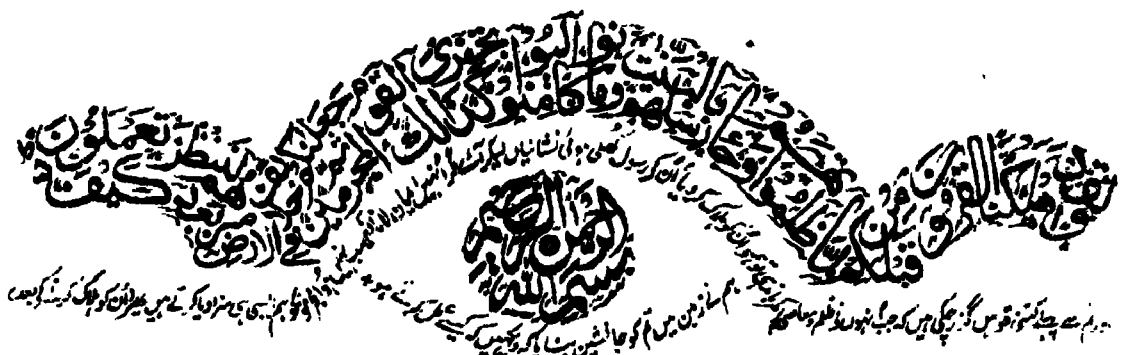 ولقد اهلكنا القرون من قبلكم لما ظلموا وجاءتهم رسلهم بالبينت وما كانوا ليؤمنوا كذلك نجزى القوم المجرمين
ثم جعلنكم خلئف فى الارض من بعدهم لننظر كيف تعملون
بسم الله الرحمن الرحيم
تم سے پہلے کتنی قومیں گزر چکی ہیں کہ جب انہوں نے ظلم و معاصی پر تو ہم نے ان کو ہلاک کر دیا ان کے رسول کھلی ہوئی نشانیاں لیکر آئے مگر انہیں ایمان لانا نصیب نہیں ہوا ایسی ہی سزا دیا کرتے ہیں پھر ان کو ہلاک کرنے کے بعد
ہم نے زمین میں تم کو جانشین بنایا تاکہ دیکھیں کہ کیسے عمل کرتے ہو